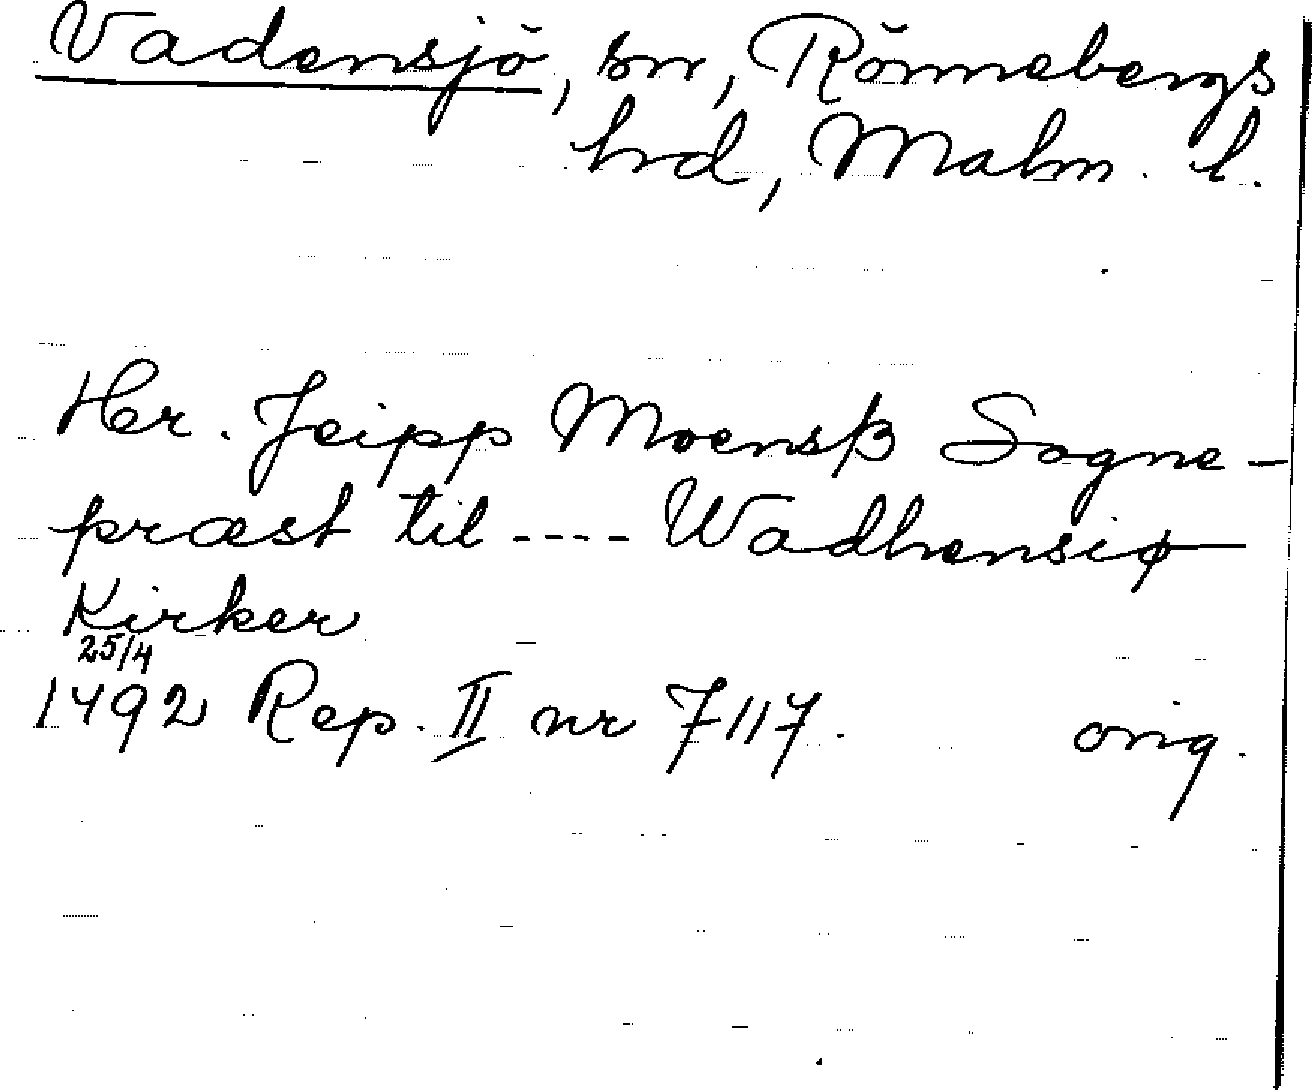 Vadensjö, sn, Rönnebergs
hrd, Malm. l.
Her. Jeipp Moensß Sogne-
præst til ---- Wadhensiø
Kirker
25/4
1492 Rep. II nr 7117. orig.